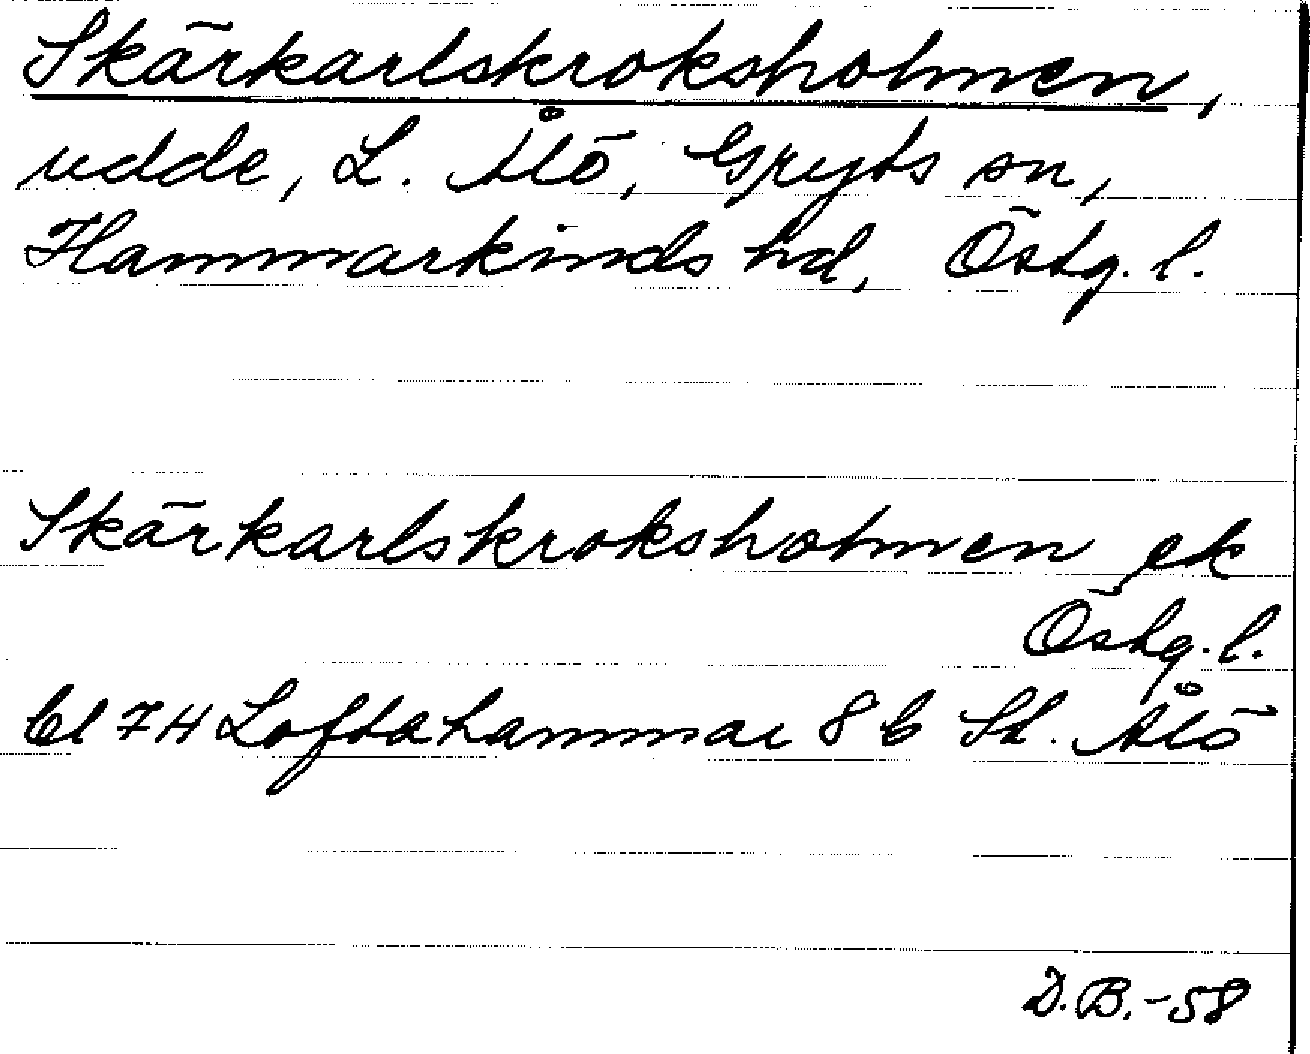 Skärkarlskroksholmen,
udde, L. Ålö, Gryts sn,
Hammarkinds hd, Östg. l.
Skärkarlskroksholmen ek
Östg. l.
bl 7H Loftahammar 8b St. Ålö
D.B.-58